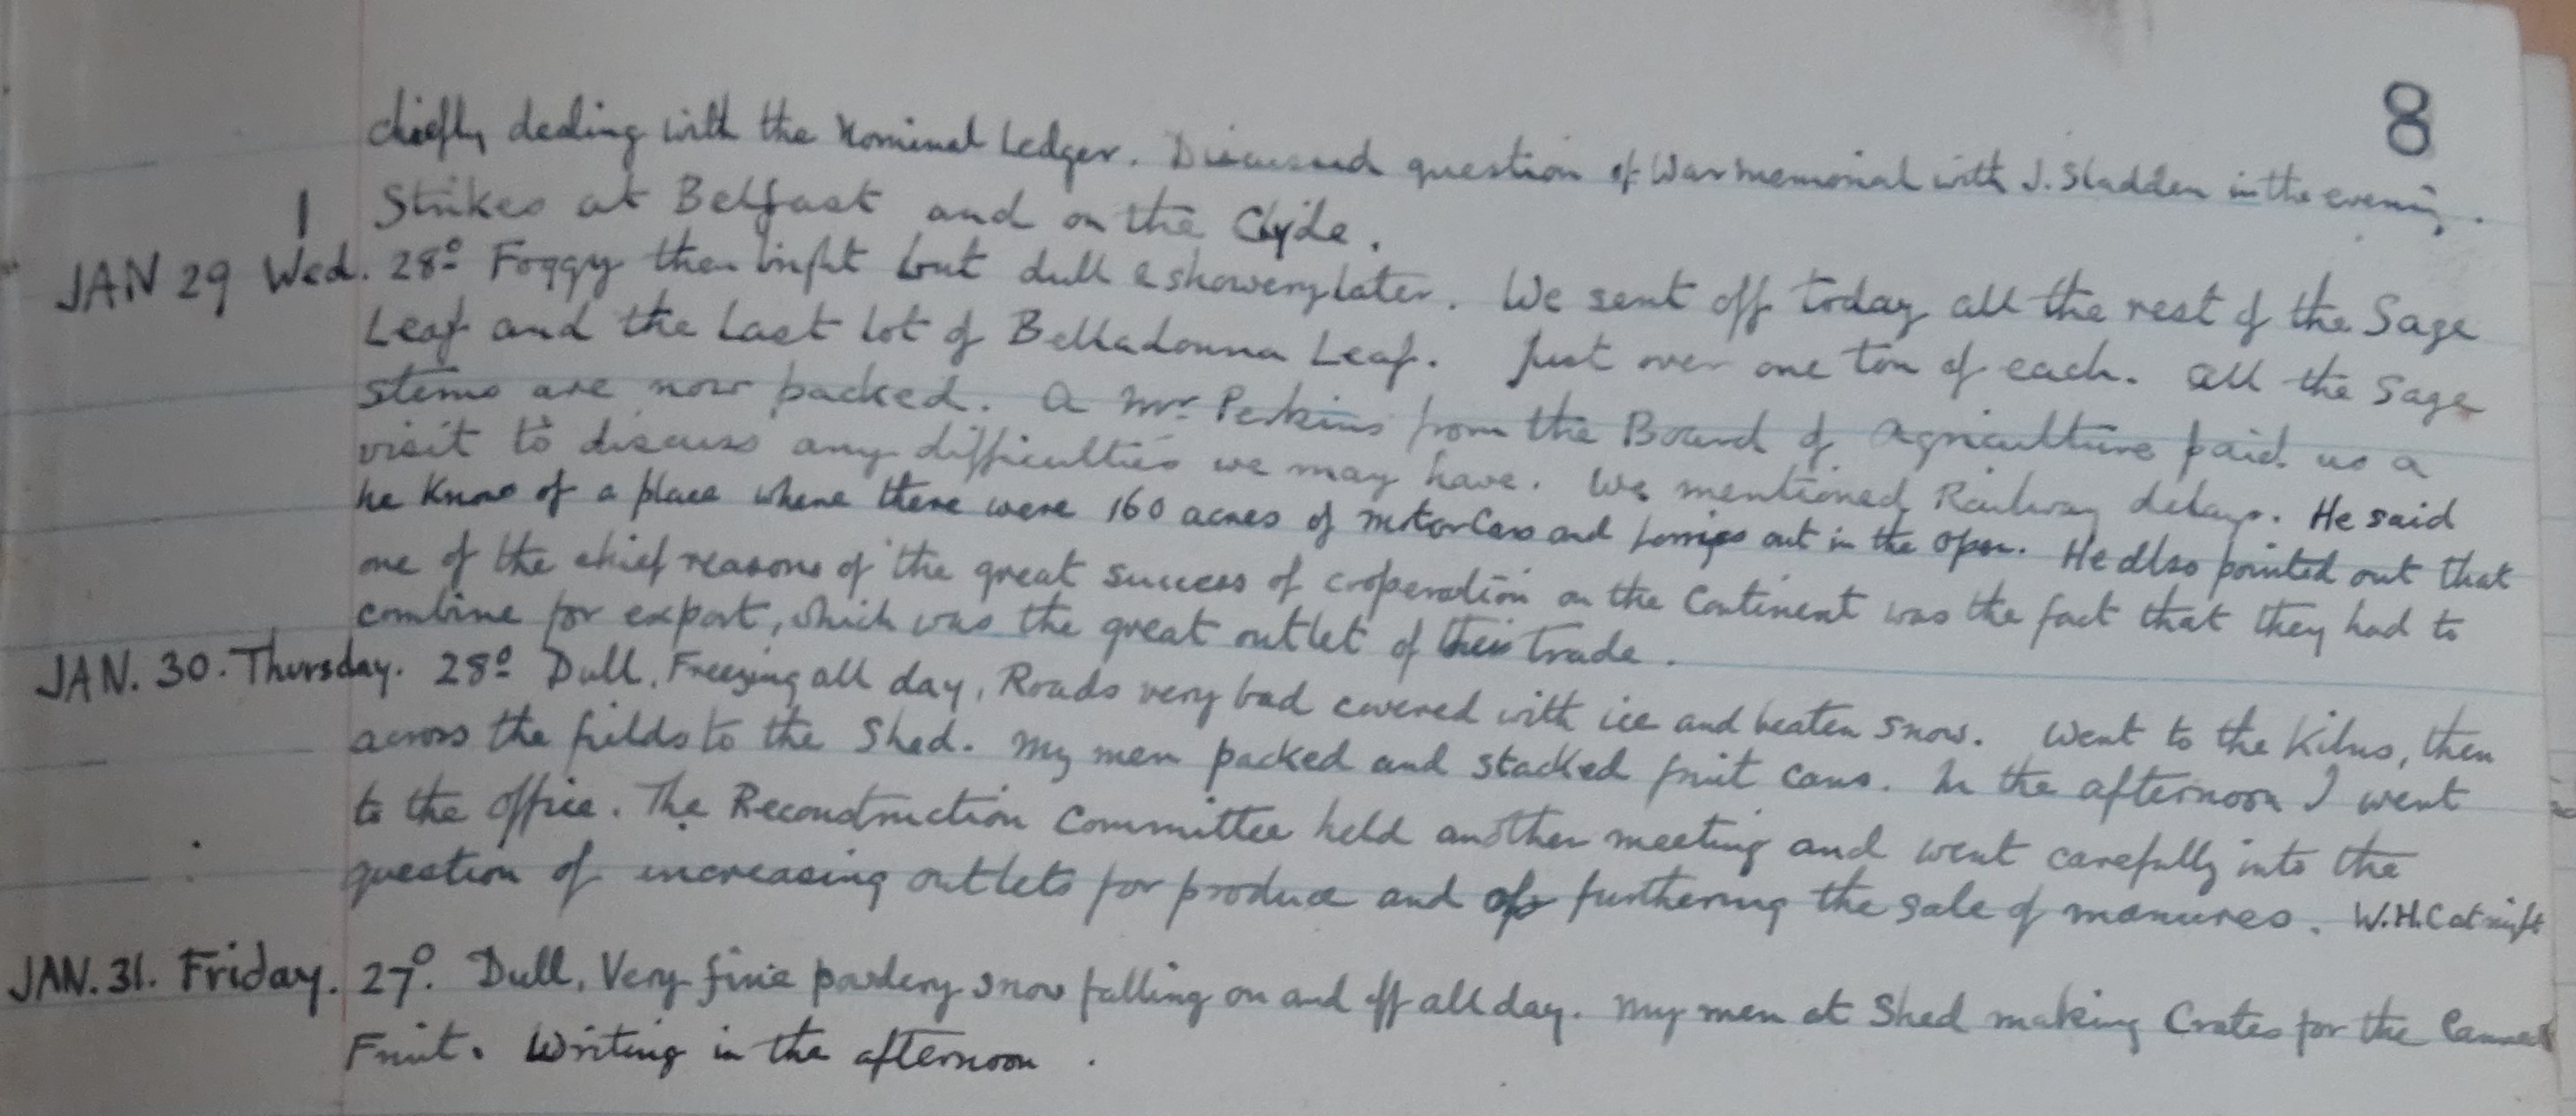 8
chiefly dealing with the Nominal Ledger. Discussed question of War memorial with J. Sladden in the evening.
Strikes at Belfast and on the Clyde.
JAN 29 Wed. 28º Foggy then bright but dull & showery later. We sent off today all the rest of the Sage
Leaf and the Last lot of Belladonna Leaf. Just over one ton of each. All the Sage
stems are now packed. A Mr Perkins from the Board of Agriculture paid us a
visit to discuss any difficulties we may have. We mentioned Railway delays. He said
he knew of a place where there were 160 acres of motor Cars and Lorries out in the open. He also pointed out that
one of the chief reasons of the great success of cooperation on the Continent was the fact that they had to
combine for export, which was the great outlet of their trade.
JAN. 30. Thursday. 28º Dull. Freezing all day, Roads very bad covered with ice and beaten snow. Went to the Kilns, then
across the fields to the Shed. My men packed and stacked fruit cans. In the afternoon I went
to the Office. The Reconstruction Committee held another meeting and went carefully into the
question of increasing outlets for produce and of furthering the sale of manures. W.H.C at night
JAN. 31. Friday. 27º. Dull, Very fine powdery snow falling on and off all day. My men at Shed making Crates for the Canned
Fruit. Writing in the afternoon.